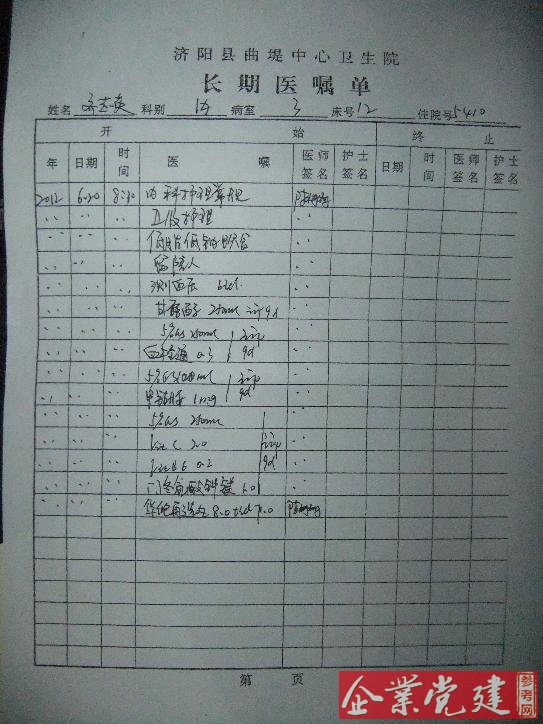 济阳县曲堤中心卫生院
长期医嘱单
姓名 科别 内 病室 3 床号 12 住院号 5410
开 始 终 止
年 日期 时间 医 嘱 医师签名 护士签名 日期 时间 医师签名 护士签名
2012 6-20 8:30 内科护理常规
〃 〃 〃 II级护理 〃
〃 〃 〃 低脂低钠饮食 〃
〃 〃 〃 留陪人 〃
〃 〃 〃 测血压 bid 〃
〃 〃 〃 甘露醇 250ml qd 〃
〃 〃 〃 5%GS 250ml 〃
〃 〃 〃 血栓通 0.3 qd 〃
〃 〃 〃 5%GS 100ml 〃
〃 〃 〃 1mg qd 〃
〃 〃 〃 5%GS 250ml 〃
〃 〃 〃 Vit C 2.0 〃
〃 〃 〃 Vit B6 0.2 qd 〃
〃 〃 〃 门冬氨酸钾镁 〃
〃 〃 〃 华佗再造丸 8.0 tid p.o
第 页
企業党建
参考网